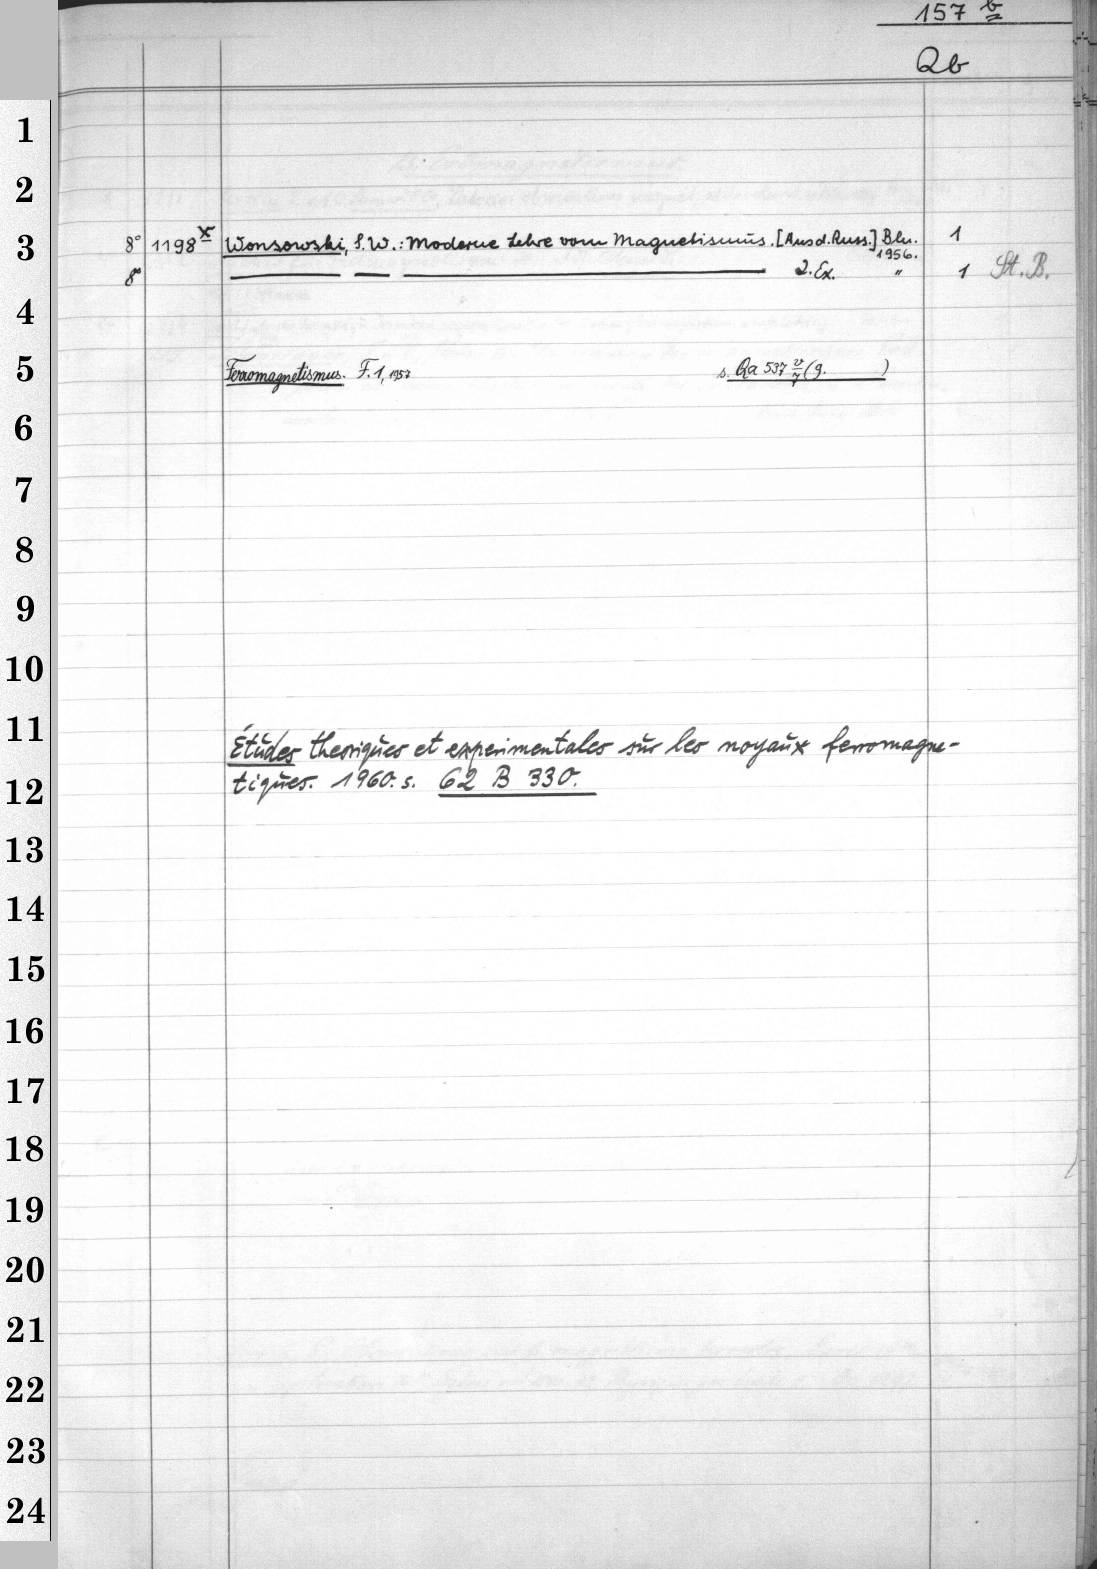 157 b
Qb
1
2
3 8° 1198 x Wonsowski, S. W.: Moderne Lehre vom Magnetismus. [Aus d. Russ.] Bln. 1956. 1
8° — — — 2. Ex. " 1 St. B.
4
5 Ferromagnetismus. F. 1, 1957 s. Qa 537 v/7 (9. )
6
7
8
9
10
11 Études theoriques et experimentales sur les noyaux ferromagne-
12 tiques. 1960. s. 62 B 330.
13
14
15
16
17
18
19
20
21
22
23
24